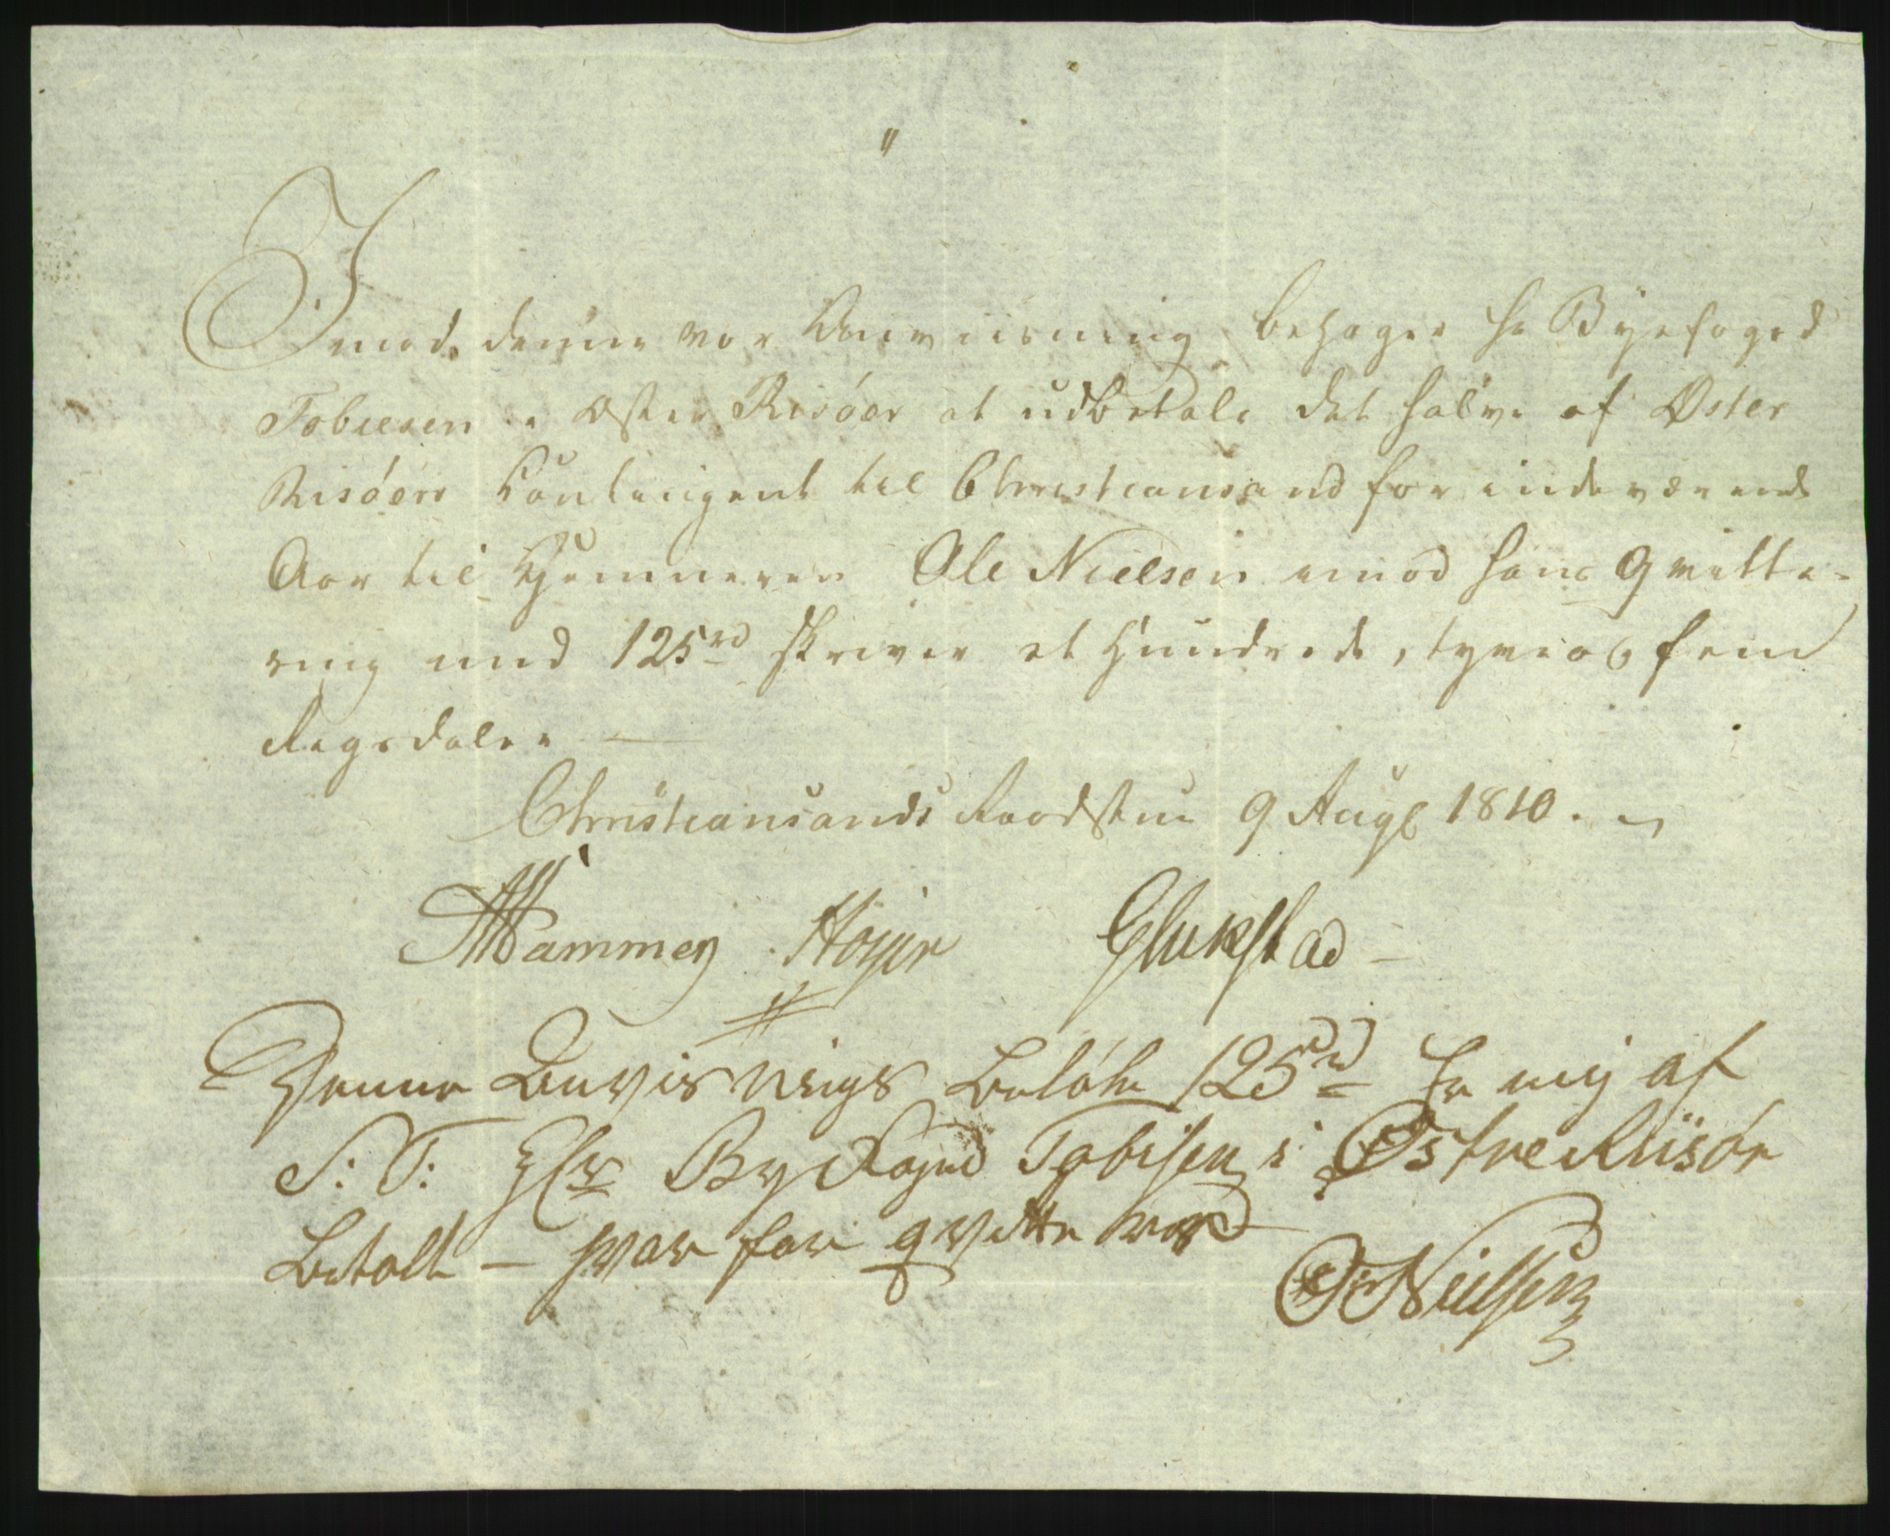 Imod denne vor Anviisning behager Hr Byefoged
Tobiesen i Øster Risöer at udbetale det halve af Øster
Risöers Contingent til Christiansand for indeværende
Aar til Kæmneren Ole Nielsen imod hans Qvitte-
ring med 125 rd skriver et Hundrede, tyve og fem
Rigsdaler —
Christiansands Raadstue 9 Aug 1810.
Wammen Höyer Glukstad —
Denne Anvisnings Belöb 125 rd Er mig af
S: T: Hr By Foged Tobisen i Østre Riisör
betalt — hvor for qvitteres
O Nielsen